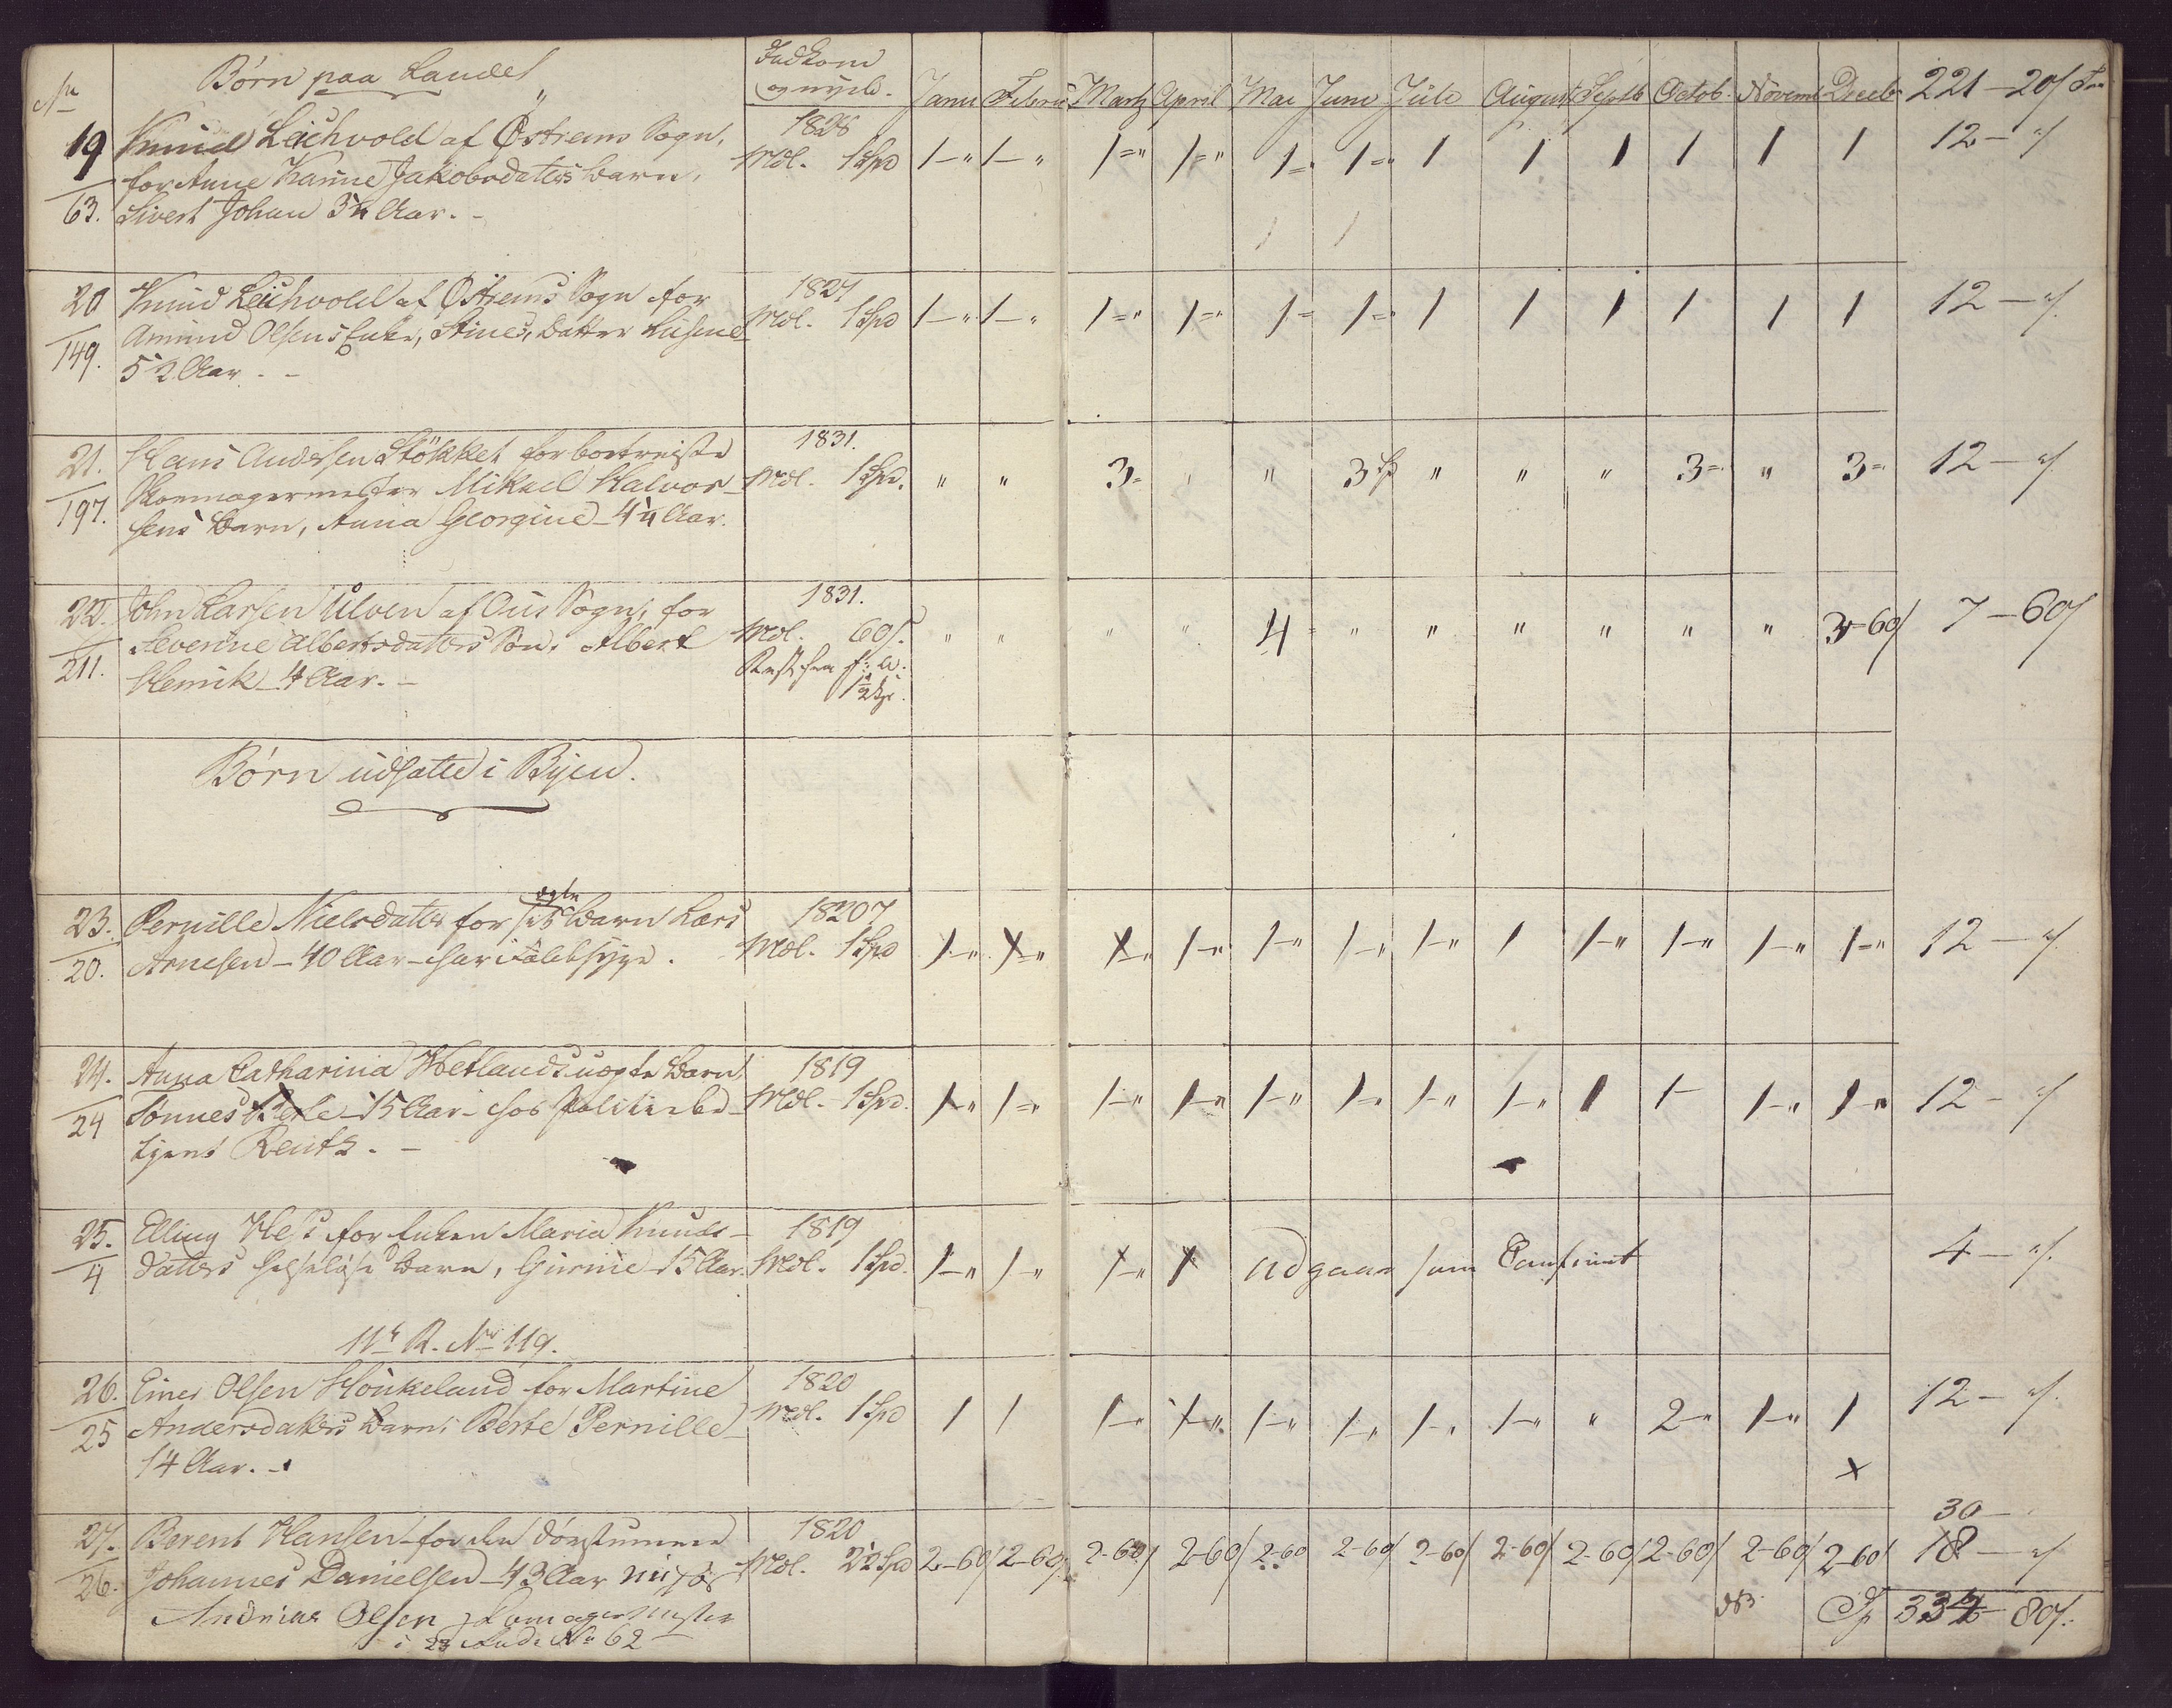 No Børn paa Landet Indkom og nyd. Janu Febru Martz April Mai Juni Juli August Septb Octob. Novemb Decebr 221 – 20 s
19 Knud Leichvold af Østrems Sogn, 1828
63. for Anne Karine Jakobsdatters Barn, Mdl. 1 Spd 1–" 1–" 1=" 1=" 1=" 1=" 1 1 1 1 1 1 12 – " s
Sivert Johan 3¼ Aar. –
20 Knud Leichvold af Østrems Sogn for 1827
149. Amund Olsens Enke, Stines, datter Mdl. 1 Spd 1–" 1–" 1=" 1=" 1= 1=" 1 1 1 1 1 1 12 – " s
5½ Aar. –
21. Hans Andersen Støkket for bortreiste 1831.
197. Skomagermester Mikael Halvor- Mdl. 1 Spd. " " 3= " " 3 Sp " " " 3= " 3= 12 – " s
sens Barn, Anna Georgine – 4¼ Aar.
22. John Larsen Ulven af Ous Sogn, for 1831.
211. Severine Albertsdatters Søn, Albert Mdl. 60 s. " " " " 4= " " " " " " 3-60 s 7 – 60 s
Henrik – 4 Aar. – Rest fra f: A. 1½ Sp.
Børn udsatte i Byen.
23. Pernille Nielsdatter for sit ægte Barn Lars 1820
20. Arnesen – 40 Aar – har Faldesyge. Mdl. 1 Spd 1–" 1–" 1–" 1–" 1–" 1–" 1–" 1 1–" 1–" 1–" 1=" 12 – " s
24. Anna Catharina Hetlands uægte Barn, 1819
24 Tønnes – 15 Aar – hos Politiebe- Mdl. 1 Spd. 1–" 1–" 1–" 1–" 1–" 1–" 1–" 1–" 1 1– 1–" 1–" 12 – " s
tjent Rentz. –
25. Elling Hess for Enken Maria Knuds- 1819
4 datters Barn, Gurine – 15 Aar. Mdl. 1 Spd. 1–" 1–" 1–" 1 udgaar som Confirmt 4 – " s.
11te R. No 119.
26. Einer Olsen Houkeland for Martine 1820
25 Andersdatters Barn, Berte Pernille – Mdl. 1 Spd 1 1 1–" 1–" 1–" 1–" 1–" 1–" " 2–" 1–" 1 12 – " s.
14 Aar. – x
27. Berent Hansen – for den døvstumme 1820 30 –
26. Johannes Danielsen – 43 Aar nu hos Mdl. 2½ Spd 2-60 s 2-60 s 2-60 s 2-60 s 2-60 2-60 s 2-60 s 2-60 s 2-60 s 2-60 s 2-60 s 2-60 s 18 – " s
Andreas Olsen Skomagermester Sp 334 – 80 s.
i 23 No 62